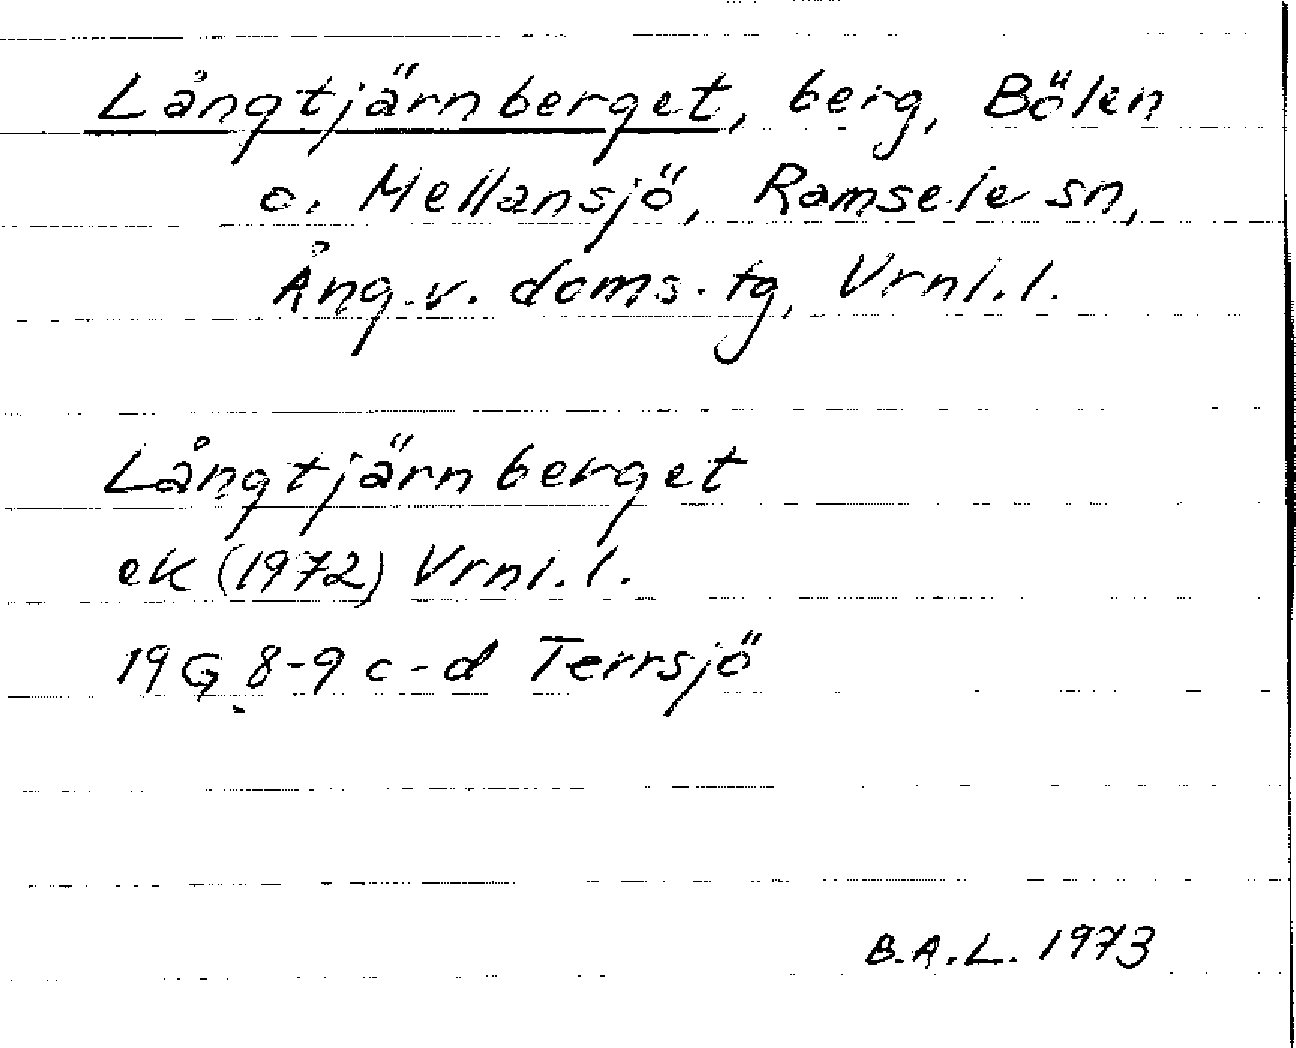 Långtjärnberget, berg, Bölen
o. Mellansjö, Ramsele sn,
Ång.v. doms.tg, Vrnl.l.
Långtjärnberget
ek (1972) Vrnl.l.
19 G 8-9 c-d Terrsjö
B.A.L. 1973